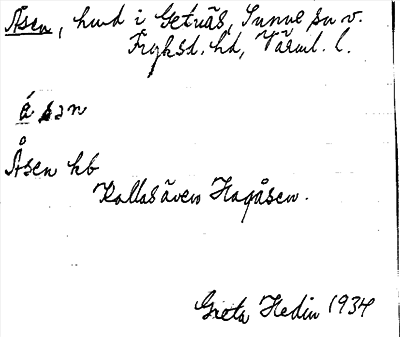 Åsen, hmd i Getnäs, Sunne sn v.
Fryksd. hd, Värml. l.
å sən
Åsen hb
Kallas även Hagåsen.
Greta Hedin 1934